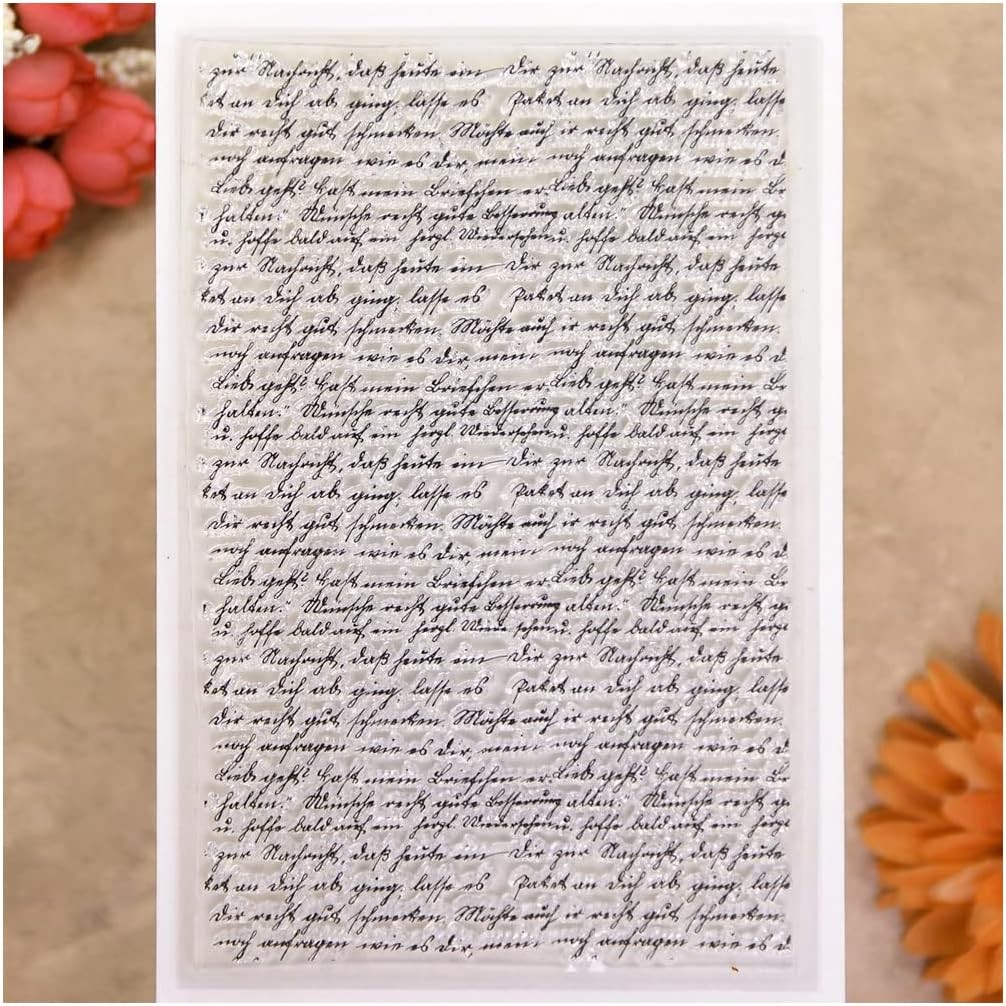 zur Nachricht, daß heute ein Dir zur Nachricht, daß heute
ket an Dich ab ging, lasse es Paket an Dich ab ging, lasse
Dir recht gut schmecken. Möchte auch ir recht gut schmecken.
noch anfragen wie es Dir, mein noch anfragen wie es D
Lieb geht? Hast mein Briefchen er Lieb geht? Hast mein Br
halten? Wünsche recht gute Besserung alten? Wünsche recht g
u. hoffe bald auf ein herzl. Wiedersehen u. hoffe bald auf ein herz
zur Nachricht, daß heute ein Dir zur Nachricht, daß heute
ket an Dich ab ging, lasse es Paket an Dich ab ging, lasse
Dir recht gut schmecken. Möchte auch ir recht gut schmecken.
noch anfragen wie es Dir, mein noch anfragen wie es D
Lieb geht? Hast mein Briefchen er Lieb geht? Hast mein Br
halten? Wünsche recht gute Besserung alten? Wünsche recht g
u. hoffe bald auf ein herzl. Wiedersehen u. hoffe bald auf ein herz
zur Nachricht, daß heute ein Dir zur Nachricht, daß heute
ket an Dich ab ging, lasse es Paket an Dich ab ging, lasse
Dir recht gut schmecken. Möchte auch ir recht gut schmecken.
noch anfragen wie es Dir, mein noch anfragen wie es D
Lieb geht? Hast mein Briefchen er Lieb geht? Hast mein Br
halten? Wünsche recht gute Besserung alten? Wünsche recht g
u. hoffe bald auf ein herzl. Wiedersehen u. hoffe bald auf ein herz
zur Nachricht, daß heute ein Dir zur Nachricht, daß heute
ket an Dich ab ging, lasse es Paket an Dich ab ging, lasse
Dir recht gut schmecken. Möchte auch ir recht gut schmecken.
noch anfragen wie es Dir, mein noch anfragen wie es D
Lieb geht? Hast mein Briefchen er Lieb geht? Hast mein Br
halten? Wünsche recht gute Besserung alten? Wünsche recht g
u. hoffe bald auf ein herzl. Wiedersehen u. hoffe bald auf ein herz
zur Nachricht, daß heute ein Dir zur Nachricht, daß heute
ket an Dich ab ging, lasse es Paket an Dich ab ging, lasse
Dir recht gut schmecken. Möchte auch ir recht gut schmecken.
noch anfragen wie es Dir, mein noch anfragen wie es D